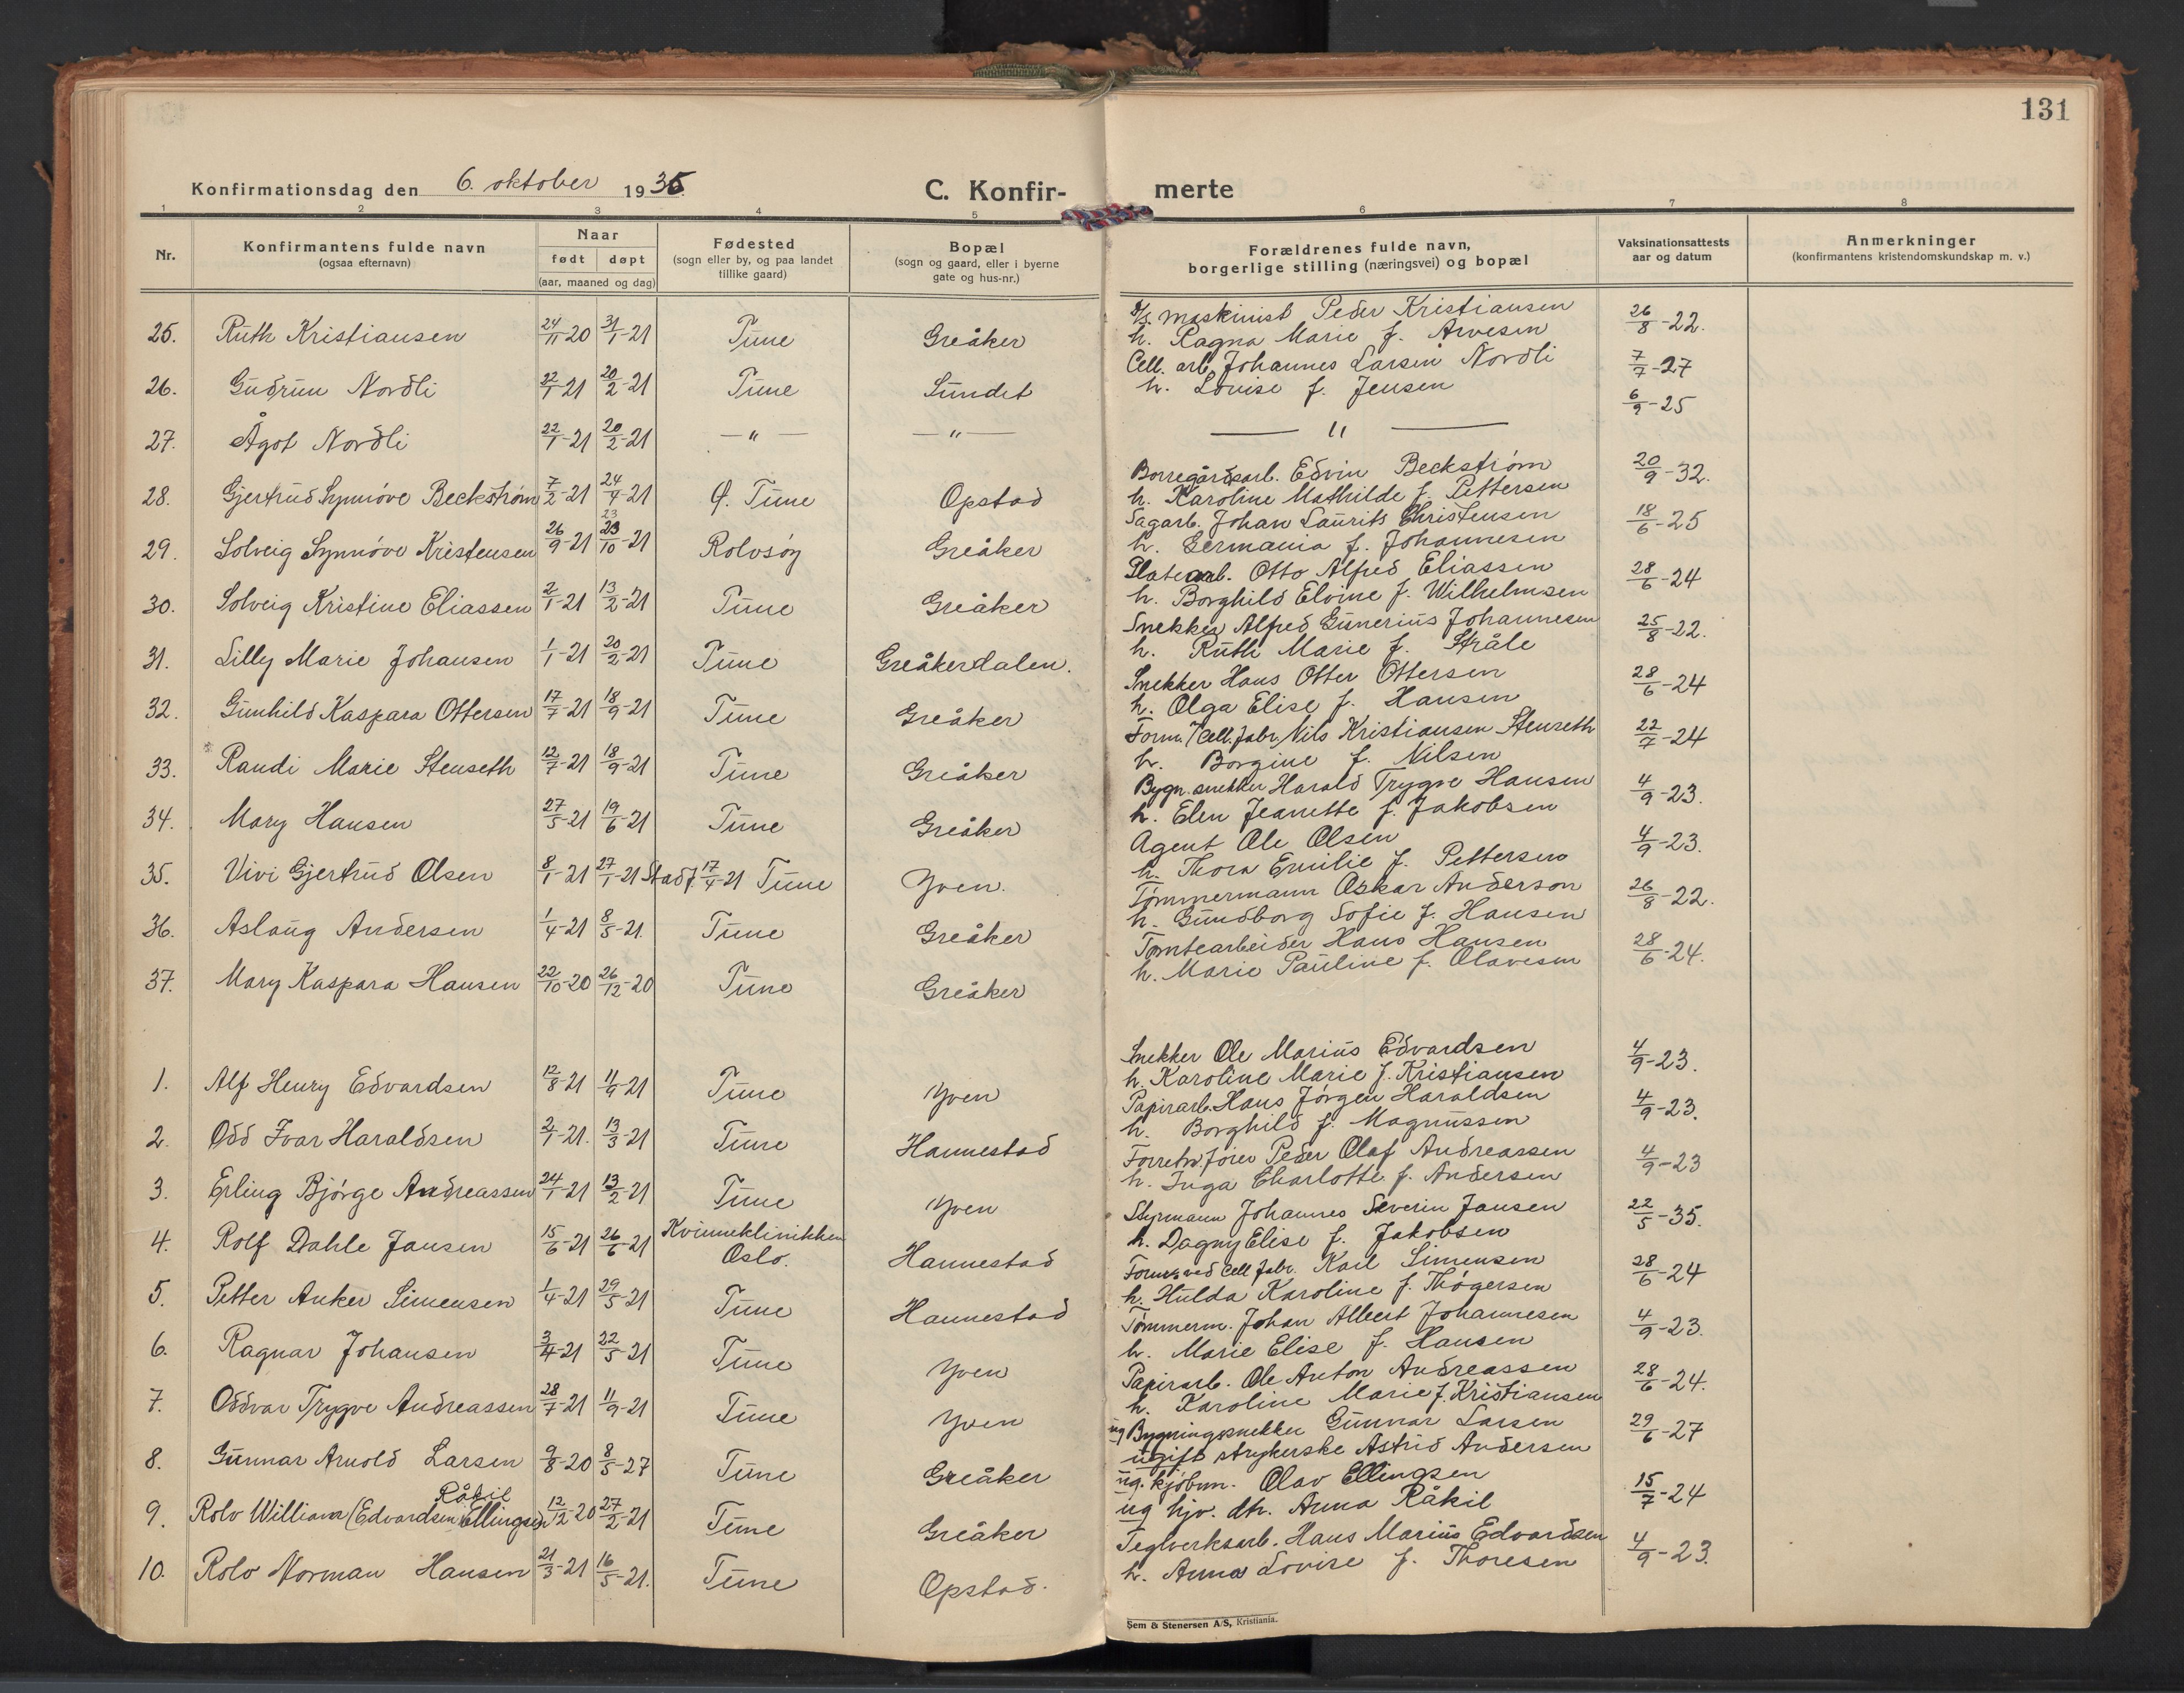 131
Konfirmationsdag den 6. oktober 1935. C. Konfir- merte
1 2 3 4 5 6 7 8
Nr.
Konfirmantens fulde navn
(ogsaa efternavn)
Naar
født døpt
(aar, maaned og dag)
Fødested
(sogn eller by, og paa landet
tillike gaard)
Bopæl
(sogn og gaard, eller i byerne
gate og hus-nr.)
Forældrenes fulde navn,
borgerlige stilling (næringsvei) og bopæl
Vaksinationsattests
aar og datum
Anmerkninger
(konfirmantens kristendomskundskap m. v.)
25. Ruth Kristiansen 24/11-20 31/1-21 Tune Greåker
maskinist Peder Kristiansen
h. Ragna Marie f. Arvesen 26/8-22.
26. Gudrun Nordli 22/1-21 20/2-21 Tune Sundet
Cell. arb. Johannes Larsen Nordli
h. Lovise f. Jensen 7/7-27
27. Ågot Nordli 22/1-21 20/2-21 — " — — " — — " — 6/9-25
28. Gjertrud Synnöve Beckström 7/2-21 24/4-21 Ø. Tune Opstad
Borregårdsarb. Edvin Beckström
h. Karoline Mathilde f. Pettersen 20/9-32.
29. Solveig Synnöve Kristensen 26/9-21 23/10-21 Rolvsöy Greåker
23
Sagarb. Johan Laurits Christensen
h. Germania f. Johannesen 18/6-25
30. Solveig Kristine Eliassen 2/1-21 13/2-21 Tune Greåker
Platearb. Otto Alfred Eliassen
h. Borghild Elvine f. Wilhelmsen 28/6-24
31. Lilly Marie Johansen 1/1-21 20/2-21 Tune Greåkerdalen.
Snekker Alfred Gunerius Johannesen
h. Ruth Marie f. Stråle 25/8-22.
32. Gunhild Kaspara Ottersen 17/7-21 18/9-21 Tune Greåker
Snekker Hans Otter Ottersen
h. Olga Elise f. Hansen 28/6-24
33. Randi Marie Stenseth 12/7-21 18/9-21 Tune Greåker
Form. / Cell. fabr. Nils Kristiansen Stenseth
h. Borgine f. Nilsen 22/7-24
34. Mary Hansen 27/5-21 19/6-21 Tune Greåker
Bygn. snekker Harald Trygve Hansen
h. Elen Jeanette f. Jakobsen 4/9-23.
35. Vivi Gjertrud Olsen 8/1-21 27/1-21 Stadf. 17/4-21 Tune Yven.
Agent Ole Olsen
h. Thora Emilie f. Pettersen 4/9-23.
36. Aslaug Andersen 1/4-21 8/5-21. Tune Greåker
Tömmermann Oskar Anderson
h. Gundborg Sofie f. Hansen 26/8-22.
37. Mary Kaspara Hansen 22/10-20 26/12-20 Tune Greåker
Tomtearbeider Hans Hansen
h. Marie Pauline f. Olavesen 28/6-24.
1. Alf Henry Edvardsen 12/8-21 11/9-21 Tune Yven
Snekker Ole Marius Edvardsen
h. Karoline Marie f. Kristiansen 4/9-23.
2. Odd Ivar Haraldsen 2/1-21. 13/3-21 Tune Hannestad
Papirarb. Hans Jörgen Haraldsen
h. Borghild f. Magnussen 4/9-23.
3. Erling Bjørge Andreassen 24/1-21 13/2-21 Tune Yven
Forretn. förer Peder Olaf Andreassen
h. Inga Charlotte f. Andersen 4/9-23
4. Rolf Dahle Jansen 15/6-21 26/6-21 Kvinneklinikken
Oslo. Hannestad
Styrmann Johannes Severin Jansen
h. Dagny Elise f. Jakobsen 22/5-35.
5. Petter Anker Simensen 1/4-21 29/5-21 Tune Hannestad
Form. ved Cell fabr. Karl Simensen
h. Hulda Karoline f. Thögersen 28/6-24
6. Ragnar Johansen 3/4-21 22/5-21 Tune Yven
Tömmerm. Johan Albert Johannesen
h. Marie Elise f. Hansen 4/9-23.
7. Oddvar Trygve Andreassen 28/7-21 11/9-21 Tune Yven
Papirarb. Ole Anton Andreassen
h. Karoline Marie f. Kristiansen 28/6-24.
8. Gunnar Arnold Larsen 9/8-20 8/5-27 Tune Greåker
ug Bygningssnekker Gunnar Larsen
ugift strykerske Astrid Andersen 29/6-27
Råkil
9. Rolv William (Edvardsen Ellingsen) 12/12-20 27/2-21 Tune Greåker
ug. kjöbm. Olav Ellingsen
ug hjv. dtr. Anna Råkil 15/7-24
10. Rolv Norman Hansen 21/3-21 16/5-21. Tune Opstad.
Teglverksarb. Hans Marius Edvardsen
h. Anna Lovise f. Thoresen 4/9-23.
Sem & Stenersen A/S, Kristiania.